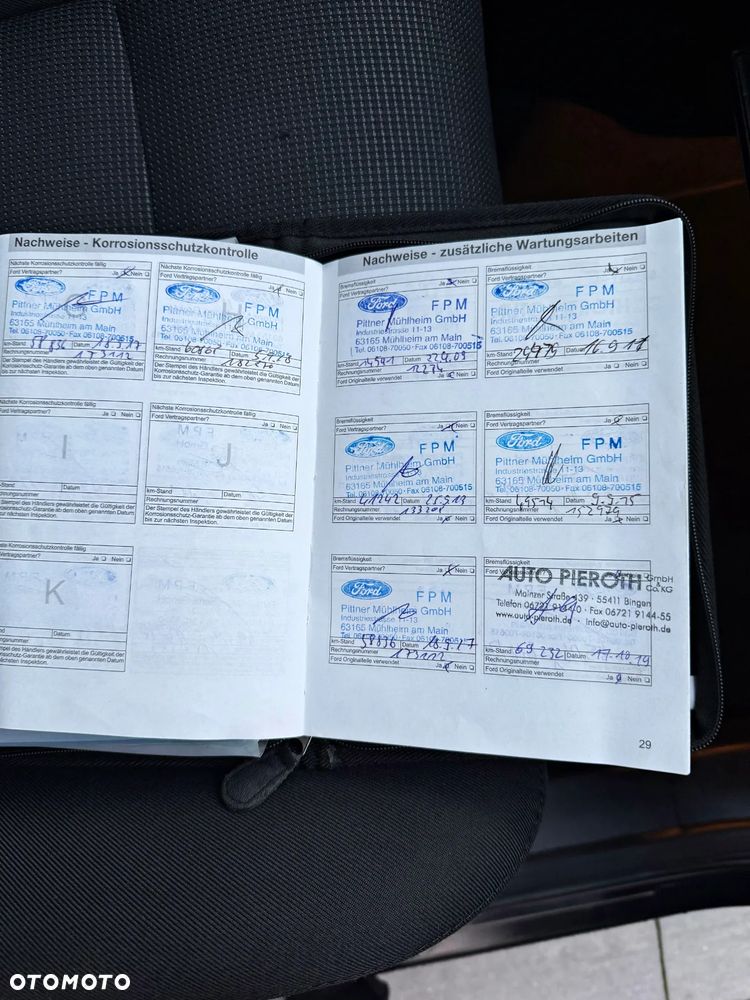 Nachweise - Korrosionsschutzkontrolle
Nächste Korrosionsschutzkontrolle fällig
Ford Vertragspartner? Ja Nein
Ford
FPM
Pittner Mühlheim GmbH
Industriestrasse 11-13
63165 Mühlheim am Main
Tel. 06108-70050 · Fax 06108-700515
km-Stand 58836 Datum
Rechnungsnummer 173112
Der Stempel des Händlers gewährleistet die Gültigkeit der
Korrosionsschutz-Garantie ab dem oben genannten Datum
bis zur nächsten Inspektion.
Nächste Korrosionsschutzkontrolle fällig
Ford Vertragspartner? Ja Nein
Ford
FPM
Pittner Mühlheim GmbH
Industriestrasse 11-13
63165 Mühlheim am Main
Tel. 06108-70050 · Fax 06108-700515
km-Stand Datum
Rechnungsnummer
Der Stempel des Händlers gewährleistet die Gültigkeit der
Korrosionsschutz-Garantie ab dem oben genannten Datum
bis zur nächsten Inspektion.
Nächste Korrosionsschutzkontrolle fällig
Ford Vertragspartner? Ja Nein
I
km-Stand Datum
Rechnungsnummer
Der Stempel des Händlers gewährleistet die Gültigkeit der
Korrosionsschutz-Garantie ab dem oben genannten Datum
bis zur nächsten Inspektion.
Nächste Korrosionsschutzkontrolle fällig
Ford Vertragspartner? Ja Nein
J
km-Stand Datum
Rechnungsnummer
Der Stempel des Händlers gewährleistet die Gültigkeit der
Korrosionsschutz-Garantie ab dem oben genannten Datum
bis zur nächsten Inspektion.
Korrosionsschutzkontrolle fällig
Vertragspartner? Ja Nein
K
Datum
Rechnungsnummer
Der Stempel des Händlers gewährleistet die Gültigkeit der
Korrosionsschutz-Garantie ab dem oben genannten Datum
bis zur nächsten Inspektion.
Nachweise - zusätzliche Wartungsarbeiten
Bremsflüssigkeit
Ford Vertragspartner? Ja Nein
Ford
FPM
Pittner Mühlheim GmbH
Industriestrasse 11-13
63165 Mühlheim am Main
Tel. 06108-70050 · Fax 06108-700515
km-Stand Datum
Rechnungsnummer
Ford Originalteile verwendet Ja Nein
Bremsflüssigkeit
Ja Nein
Ford
FPM
Pittner Mühlheim GmbH
Industriestrasse 11-13
63165 Mühlheim am Main
Tel. 06108-70050 · Fax 06108-700515
km-Stand Datum 16.9.11
Rechnungsnummer
Ford Originalteile verwendet Ja Nein
Bremsflüssigkeit
Ford Vertragspartner? Ja Nein
Ford
FPM
Pittner Mühlheim GmbH
Industriestrasse 11-13
63165 Mühlheim am Main
Tel. 06108-70050 · Fax 06108-700515
km-Stand Datum
Rechnungsnummer
Ford Originalteile verwendet Ja Nein
Bremsflüssigkeit
Ford Vertragspartner? Ja Nein
Ford
FPM
Pittner Mühlheim GmbH
Industriestrasse 11-13
63165 Mühlheim am Main
Tel. 06108-70050 · Fax 06108-700515
km-Stand 49514 Datum 9.9.15
Rechnungsnummer 152979
Ford Originalteile verwendet Ja Nein
Bremsflüssigkeit
Ford Vertragspartner? Ja Nein
Ford
FPM
Pittner Mühlheim GmbH
Industriestrasse 11-13
63165 Mühlheim am Main
Tel. 06108-70050 · Fax 06108-700515
km-Stand 58836 Datum 18.9.17
Rechnungsnummer 173112
Ford Originalteile verwendet Ja Nein
Bremsflüssigkeit
AUTO PIEROTH GmbH & Co. KG
Mainzer Straße 339 · 55411 Bingen
Telefon 06721 · Fax 06721 9144-55
www.auto-pieroth.de · info@auto-pieroth.de
km-Stand 69 232 Datum 17.10.19
Rechnungsnummer
Ford Originalteile verwendet Ja Nein
29
OTOMOTO